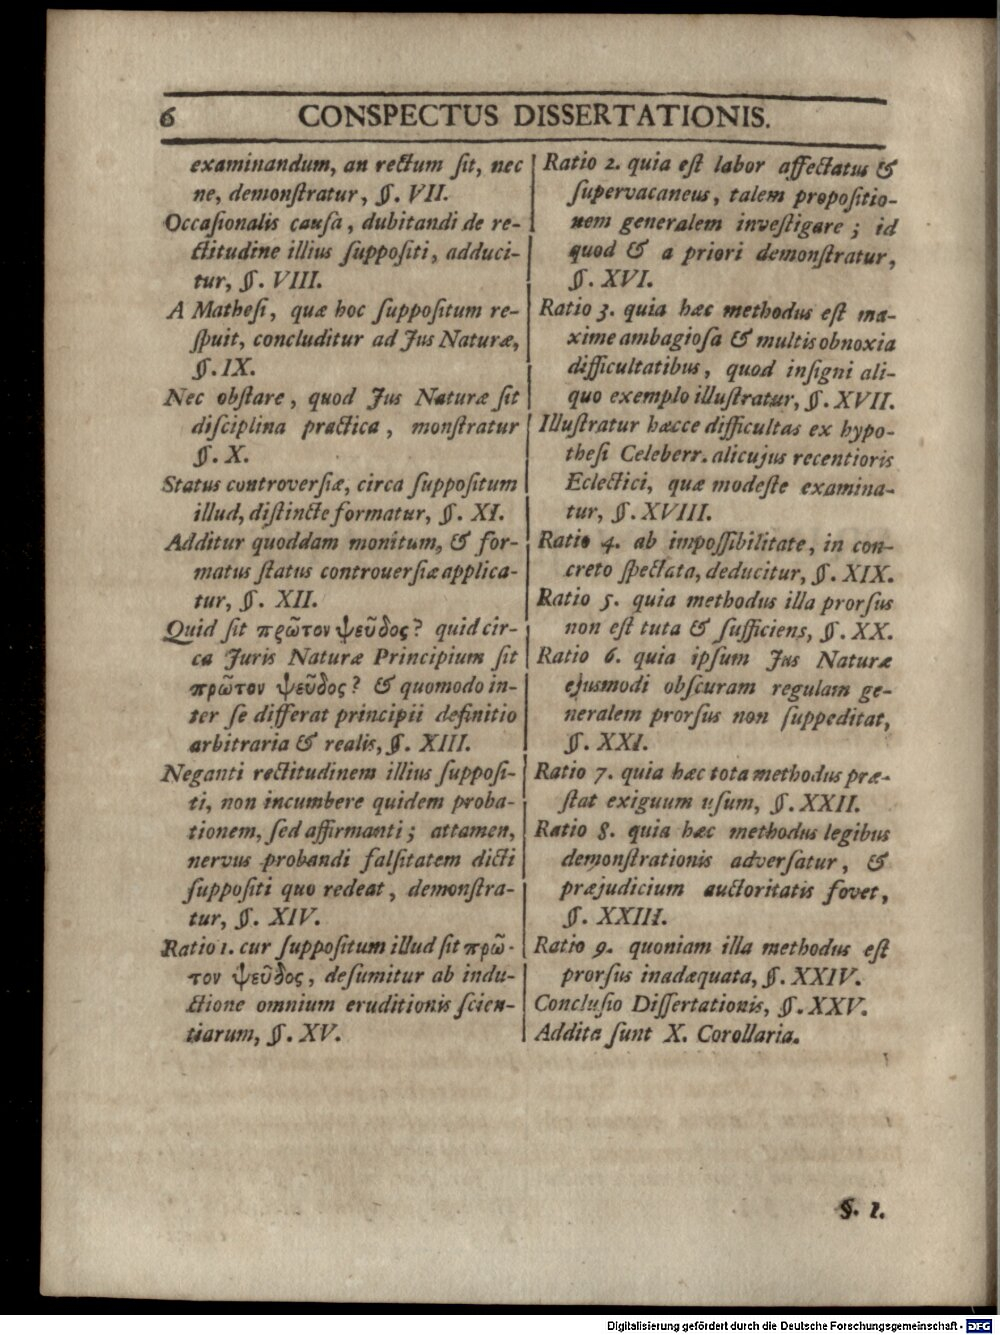 6 CONSPECTUS DISSERTATIONIS.
examinandum, an rectum ſit, nec
ne, demonſtratur, §. VII.
Occaſionalis cauſa, dubitandi de re-
ctitudine illius ſuppoſiti, adduci-
tur, §. VIII.
A Matheſi, quæ hoc ſuppoſitum re-
ſpuit, concluditur ad Jus Naturæ,
§. IX.
Nec obſtare, quod Jus Naturæ ſit
diſciplina practica, monſtratur
§. X.
Status controverſiæ, circa ſuppoſitum
illud, diſtincte formatur, §. XI.
Additur quoddam monitum, & for-
matus ſtatus controuerſiæ applica-
tur, §. XII.
Quid ſit πρῶτον ψεῦδος? quid cir-
ca Juris Naturæ Principium ſit
πρῶτον ψεῦδος? & quomodo in-
ter ſe differat principii definitio
arbitraria & realis, §. XIII.
Neganti rectitudinem illius ſuppoſi-
ti, non incumbere quidem proba-
tionem, ſed affirmanti; attamen,
nervus probandi falſitatem dicti
ſuppoſiti quo redeat, demonſtra-
tur, §. XIV.
Ratio 1. cur ſuppoſitum illud ſit πρῶ-
τον ψεῦδος, deſumitur ab indu-
ctione omnium eruditionis ſcien-
tiarum, §. XV.
Ratio 2. quia eſt labor affectatus &
ſupervacaneus, talem propoſitio-
nem generalem inveſtigare; id
quod & a priori demonſtratur,
§. XVI.
Ratio 3. quia hæc methodus eſt ma-
xime ambagioſa & multis obnoxia
difficultatibus, quod inſigni ali-
quo exemplo illuſtratur, §. XVII.
Illuſtratur hæcce difficultas ex hypo-
theſi Celeberr. alicujus recentioris
Eclectici, quæ modeſte examina-
tur, §. XVIII.
Ratio 4. ab impoſſibilitate, in con-
creto ſpectata, deducitur, §. XIX.
Ratio 5. quia methodus illa prorſus
non eſt tuta & ſufficiens, §. XX.
Ratio 6. quia ipſum Jus Naturæ
ejusmodi obſcuram regulam ge-
neralem prorſus non ſuppeditat,
§. XXI.
Ratio 7. quia hæc tota methodus præ-
ſtat exiguum uſum, §. XXII.
Ratio 8. quia hæc methodus legibus
demonſtrationis adverſatur, &
præjudicium auctoritatis fovet,
§. XXIII.
Ratio 9. quoniam illa methodus eſt
prorſus inadæquata, §. XXIV.
Concluſio Diſſertationis, §. XXV.
Addita ſunt X. Corollaria.
§. 1.
Digitalisierung gefördert durch die Deutsche Forschungsgemeinschaft - DFG